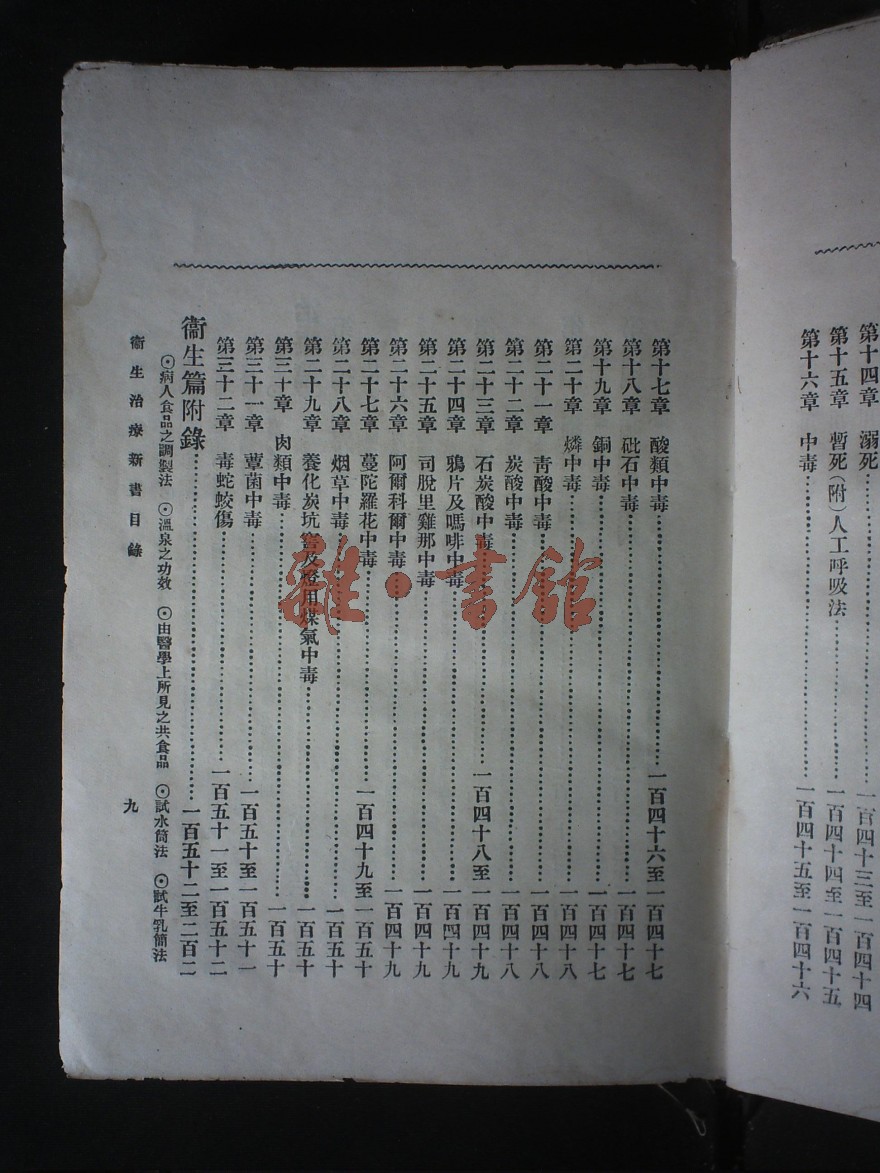 第十四章　溺死………一百四十三至一百四十四
第十五章　暫死(附)人工呼吸法………一百四十四至一百四十五
第十六章　中毒………一百四十五至一百四十六
第十七章　酸類中毒………一百四十六至一百四十七
第十八章　砒石中毒………一百四十七
第十九章　銅中毒………一百四十七
第二十章　燐中毒………一百四十八
第二十一章　青酸中毒………一百四十八
第二十二章　炭酸中毒………一百四十八
第二十三章　石炭酸中毒………一百四十八至一百四十九
第二十四章　鴉片及嗎啡中毒………一百四十九
第二十五章　司脫里雞那中毒………一百四十九
第二十六章　阿爾科爾中毒………一百四十九
第二十七章　蔓陀羅花中毒………一百四十九至一百五十
第二十八章　烟草中毒………一百五十
第二十九章　養化炭坑窖及燈用煤氣中毒………一百五十
第三十章　肉類中毒………一百五十
第三十一章　蕈菌中毒………一百五十至一百五十一
第三十二章　毒蛇蛟傷………一百五十一至一百五十二
衞生篇附錄………一百五十二至二百二
⊙病人食品之調製法　⊙溫泉之功效　⊙由醫學上所見之共食品　⊙試水筒法　⊙試牛乳筒法
衞生治療新書目錄　九
雜·書館